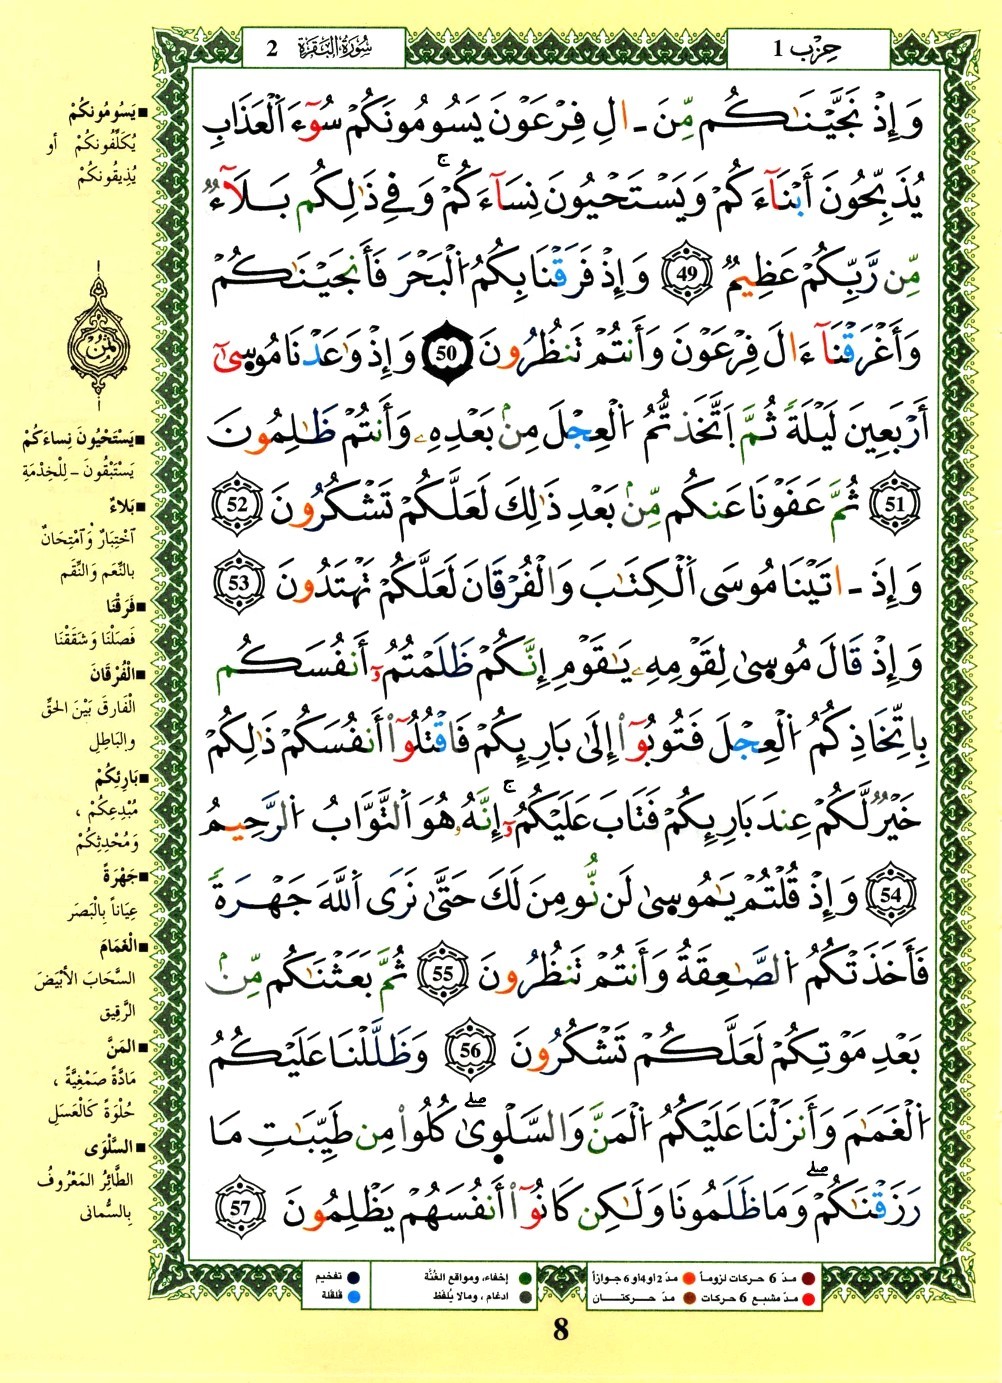 حِزْب 1
سُورَةُ البَقَرَة 2
وَإِذْ نَجَّيْنَٰكُم مِّنَ ـ الِ فِرْعَوْنَ يَسُومُونَكُمْ سُوٓءَ اَ۬لْعَذَابِ
يُذَبِّحُونَ أَبْنَآءَكُمْ وَيَسْتَحْيُونَ نِسَآءَكُمْۖ وَفِے ذَٰلِكُم بَلَآءٌ
مِّن رَّبِّكُمْ عَظِيمٌ 49 وَإِذْ فَرَقْنَا بِكُمُ اُ۬لْبَحْرَ فَأَنجَيْنَٰكُمْ
وَأَغْرَقْنَآ ءَالَ فِرْعَوْنَ وَأَنتُمْ تَنظُرُونَ 50 وَإِذْ وَٰعَدْنَا مُوسَىٰٓ
أَرْبَعِينَ لَيْلَةً ثُمَّ اَ۪تَّخَذتُّمُ اُ۬لْعِجْلَ مِنۢ بَعْدِهِۦ وَأَنتُمْ ظَٰلِمُونَ
51 ثُمَّ عَفَوْنَا عَنكُم مِّنۢ بَعْدِ ذَٰلِكَ لَعَلَّكُمْ تَشْكُرُونَ 52
وَإِذَ ـ اتَيْنَا مُوسَى اَ۬لْكِتَٰبَ وَالْفُرْقَانَ لَعَلَّكُمْ تَهْتَدُونَ 53
وَإِذْ قَالَ مُوسَىٰ لِقَوْمِهِۦ يَٰقَوْمِ إِنَّكُمْ ظَلَمْتُمُۥٓ أَنفُسَكُم
بِاتِّخَاذِكُمُ اُ۬لْعِجْلَ فَتُوبُوٓاْ إِلَىٰ بَارِئِكُمْ فَاقْتُلُوٓاْ أَنفُسَكُمْ ذَٰلِكُمْ
خَيْرٌ لَّكُمْ عِندَ بَارِئِكُمْ فَتَابَ عَلَيْكُمُۥٓۖ إِنَّهُۥ هُوَ اَ۬لتَّوَّابُ اُ۬لرَّحِيمُ
54 وَإِذْ قُلْتُمْ يَٰمُوسَىٰ لَن نُّومِنَ لَكَ حَتَّىٰ نَرَى اَ۬للَّهَ جَهْرَةً
فَأَخَذَتْكُمُ اُ۬لصَّٰعِقَةُ وَأَنتُمْ تَنظُرُونَ 55 ثُمَّ بَعَثْنَٰكُم مِّنۢ
بَعْدِ مَوْتِكُمْ لَعَلَّكُمْ تَشْكُرُونَ 56 وَظَلَّلْنَا عَلَيْكُمُ
اُ۬لْغَمَٰمَ وَأَنزَلْنَا عَلَيْكُمُ اُ۬لْمَنَّ وَالسَّلْوَىٰۖ كُلُواْ مِن طَيِّبَٰتِ مَا
رَزَقْنَٰكُمْۖ وَمَا ظَلَمُونَا وَلَٰكِن كَانُوٓاْ أَنفُسَهُمْ يَظْلِمُونَ 57
■ يَسُومُونَكُمْ
يُكَلِّفُونَكُمْ أو
يُذِيقُونَكُمْ
ثُمُن
■ يَسْتَحْيُونَ نِسَاءَكُمْ
يَسْتَبْقُونَ ـ لِلْخِدْمَةِ
■ بَلَاءٌ
آخْتِبَارٌ وَآمْتِحَانٌ
بالنِّعَم وَالنِّقَم
■ فَرَقْنَا
فَصَلْنَا وَشَقَقْنَا
■ الْفُرْقَانَ
الْفَارِقَ بَيْنَ الحَقِّ
والبَاطِلِ
■ بَارِئِكُمْ
مُبْدِعِكُمْ ،
وَمُحْدِثِكُمْ
■ جَهْرَةً
عِيَاناً بِالْبَصَر
■ الْغَمَامَ
السَّحَابَ الأبْيَضَ
الرَّقِيق
■ المَنَّ
مَادَّةً صَمْغِيَّةً ،
حُلْوَةً كَالْعَسَلِ
■ السَّلْوَى
الطَّائِرُ المَعْرُوفُ
بِالسُّمانى
مدّ 6 حركات لزوماً مدّ 2 أو 4 أو 6 جوازاً
مدّ مشبع 6 حركات مدّ حركتــان
إخفاء، ومواقع الغُنَّة تفخيم
ادغام ، ومالا يُلفَظ قلقلة
8